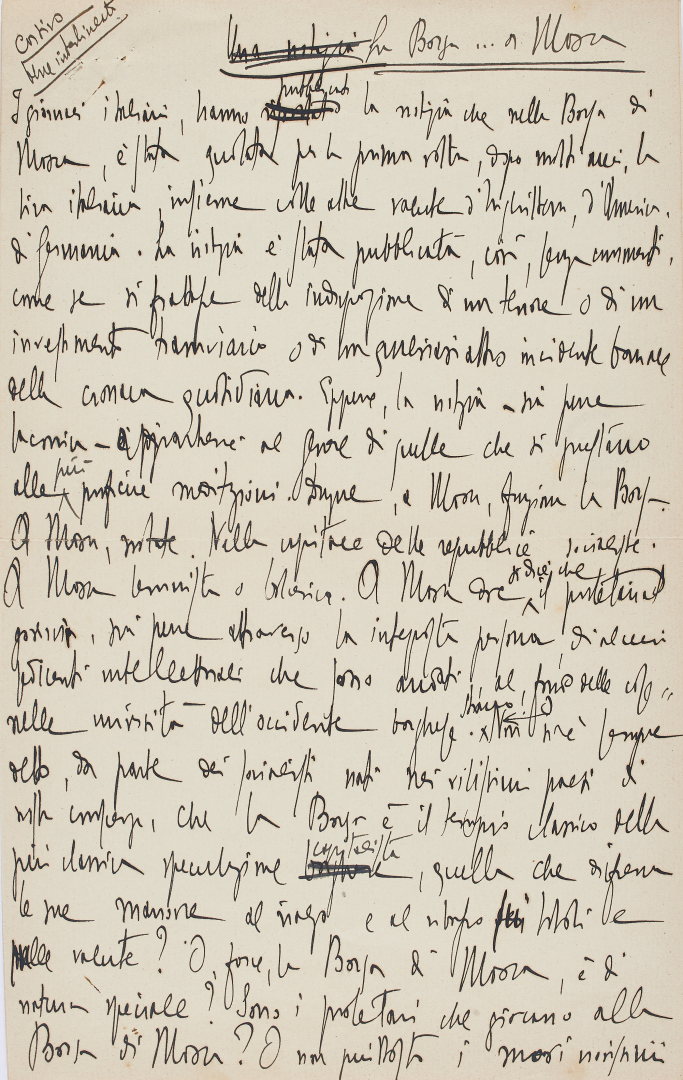 Corsivo
due interlineati
Una notizia La Borsa ... a Mosca
pubblicato
I giornali italiani, hanno riportato la notizia che nella Borsa di
Mosca, è stata quotata per la prima volta, dopo molti anni, la
lira italiana, insieme colle altre valute d'Inghilterra, d'America,
di Germania. La notizia è stata pubblicata, così, senza commenti,
come se si trattasse della indisposizione di un tenore o di un
investimento tramviario o di un qualsiasi altro incidente banale
della cronaca quotidiana. Eppure, la notizia - sia pure
laconica - appartiene al genere di quelle che si prestano
più
alle proficue meditazioni. Dunque, a Mosca, funziona la Borsa.
A Mosca, notate. Nella capitale delle repubbliche socialiste.
A Mosca leninista o bolscevica. A Mosca dove
dicesi che
il proletariato
governa, sia pure attraverso la interposta persona di alcuni
sedicenti intellettuali che sono andati, al fondo delle cose,
nelle università dell'occidente borghese.
strano
Non si è sempre
detto, da parte dei socialisti nati nei vilissimi paesi di
nostra conoscenza, che la Borsa è il tempio classico della
capitalista
più classica speculazione borghese, quella che
le sue manovre al rialzo e al ribasso sui titoli e
sulle valute? O, forse, la Borsa di Mosca, è di
natura speciale? Sono i proletari che giocano alla
Borsa di Mosca? O non piuttosto i nuovi